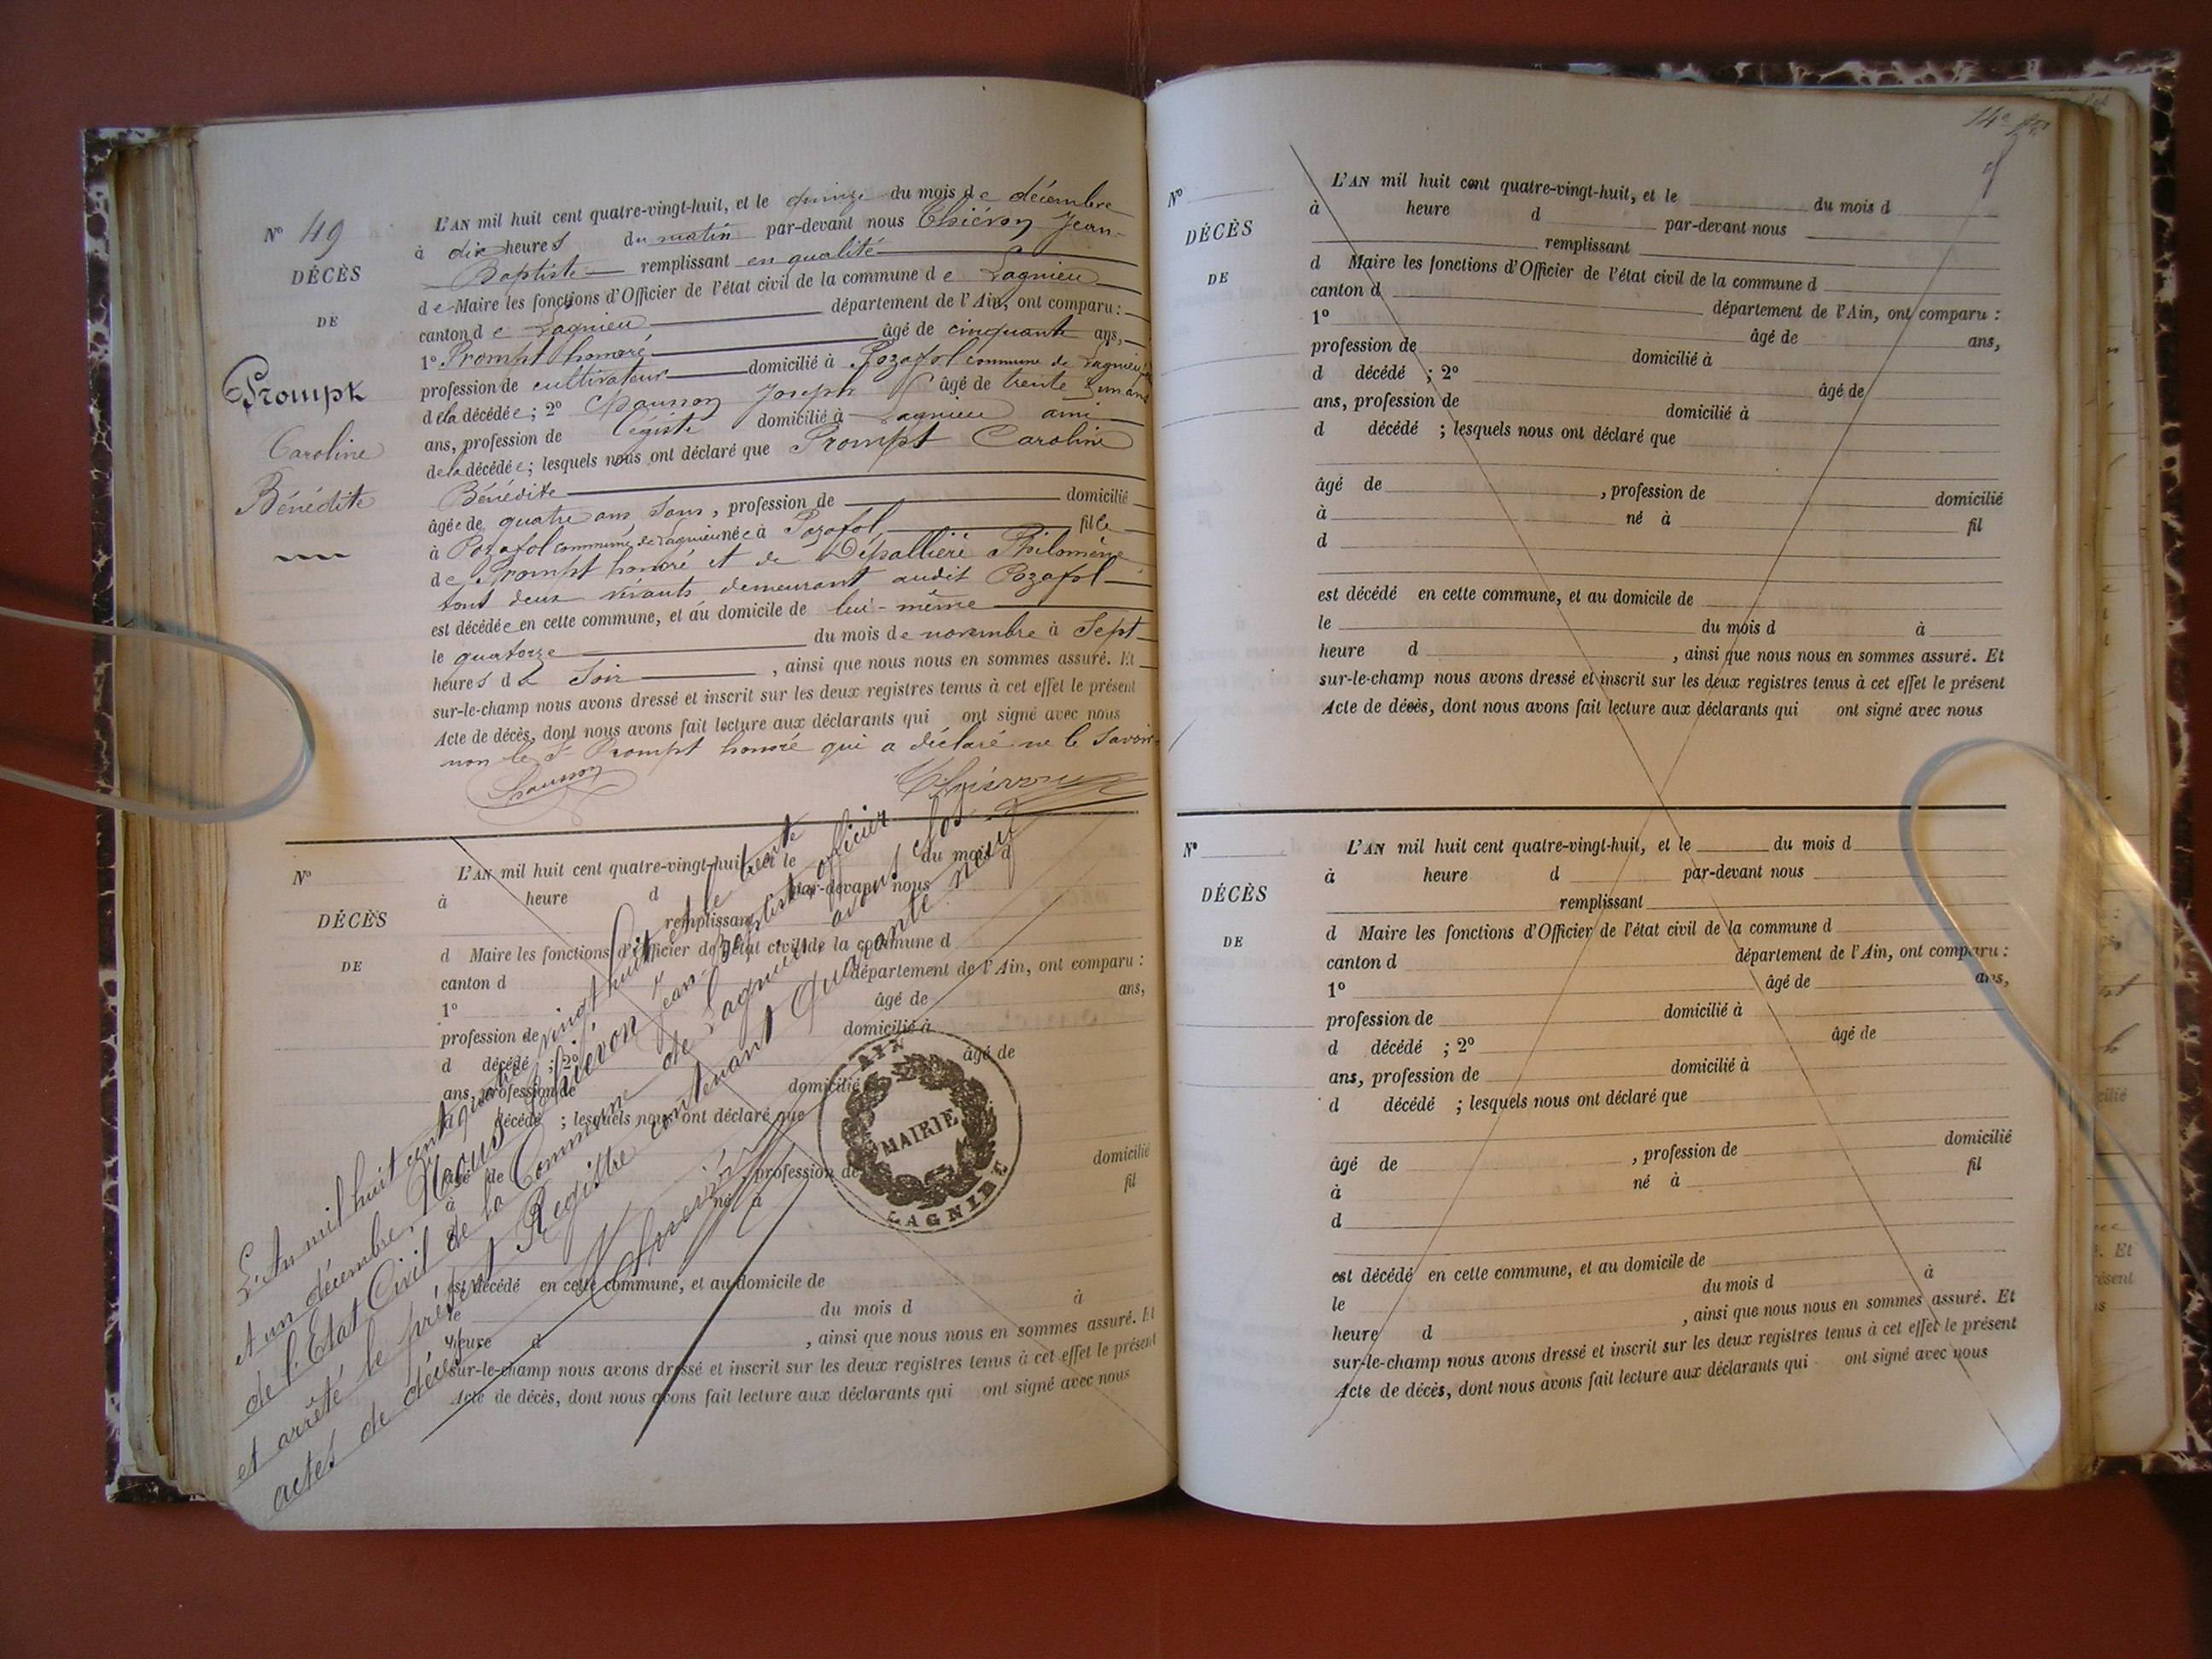 N° 49
DÉCÈS
DE
Prompt
Caroline
Bénédite
L'AN mil huit cent quatre-vingt-huit, et le quinze du mois de décembre
à dix heures du matin par-devant nous Thiévon Jean-
Baptiste remplissant en qualité
de Maire les fonctions d'Officier de l'état civil de la commune de Lagnieu
canton de Lagnieu département de l'Ain, ont comparu :
1° Prompt honoré âgé de cinquante ans,
profession de cultivateur domicilié à Pozafol commune de Lagnieu
de la décédée ; 2° Chausson Joseph âgé de trente
ans, profession de légiste domicilié à Lagnieu ami
de la décédée ; lesquels nous ont déclaré que Prompt Caroline
Bénédite
âgée de quatre ans sans, profession de domicilié
à Pozafol commune de Lagnieu née à Pozafol, fille
de Prompt honoré et de Dépallière Philomène
tout deux vivants demeurant audit Pozafol
est décédée en cette commune, et au domicile de lui-même
le quatorze du mois de novembre à Sept
heures du Soir, ainsi que nous nous en sommes assuré. Et
sur-le-champ nous avons dressé et inscrit sur les deux registres tenus à cet effet le présent
Acte de décès, dont nous avons fait lecture aux déclarants qui ont signé avec nous
non le Sr Prompt honoré qui a déclaré ne le Savoir
Chausson Thiévon
N°
DÉCÈS
DE
L'AN mil huit cent quatre-vingt-huit, et le du mois d
à heure d par-devant nous
remplissant
d Maire les fonctions d'Officier de l'état civil de la commune d
canton d département de l'Ain, ont comparu :
1° âgé de ans,
profession de domicilié à
d décédé ; 2° âgé de
ans, profession de domicilié à
d décédé ; lesquels nous ont déclaré que
âgé de , profession de domicilié
à né à fil
d
est décédé en cette commune, et au domicile de
le du mois d à
heure d , ainsi que nous nous en sommes assuré. Et
sur-le-champ nous avons dressé et inscrit sur les deux registres tenus à cet effet le présent
Acte de décès, dont nous avons fait lecture aux déclarants qui ont signé avec nous
L'An mil huit cent quatre vingt huit et le trente
et un décembre, Nous Thievon Jean-Baptiste, officier
de l'Etat Civil de la Commune de Lagnieu, avons clos
et arrêté le présent Registre contenant Quarante neuf
actes de décès.
Thiévon
AIN
MAIRIE
LAGNIEU
14e
N°
DÉCÈS
DE
L'AN mil huit cent quatre-vingt-huit, et le du mois d
à heure d par-devant nous
remplissant
d Maire les fonctions d'Officier de l'état civil de la commune d
canton d département de l'Ain, ont comparu :
1° âgé de ans,
profession de domicilié à
d décédé ; 2° âgé de
ans, profession de domicilié à
d décédé ; lesquels nous ont déclaré que
âgé de , profession de domicilié
à né à fil
d
est décédé en cette commune, et au domicile de
le du mois d à
heure d , ainsi que nous nous en sommes assuré. Et
sur-le-champ nous avons dressé et inscrit sur les deux registres tenus à cet effet le présent
Acte de décès, dont nous avons fait lecture aux déclarants qui ont signé avec nous
N°
DÉCÈS
DE
L'AN mil huit cent quatre-vingt-huit, et le du mois d
à heure d par-devant nous
remplissant
d Maire les fonctions d'Officier de l'état civil de la commune d
canton d département de l'Ain, ont comparu :
1° âgé de ans,
profession de domicilié à
d décédé ; 2° âgé de
ans, profession de domicilié à
d décédé ; lesquels nous ont déclaré que
âgé de , profession de domicilié
à né à fil
d
est décédé en cette commune, et au domicile de
le du mois d à
heure d , ainsi que nous nous en sommes assuré. Et
sur-le-champ nous avons dressé et inscrit sur les deux registres tenus à cet effet le présent
Acte de décès, dont nous avons fait lecture aux déclarants qui ont signé avec nous